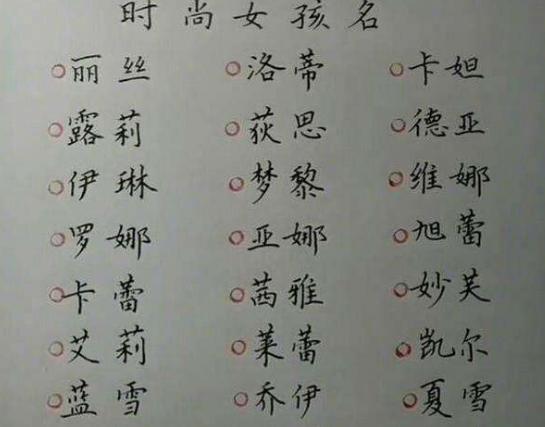 时尚女孩名
丽丝 洛蒂 卡妲
露莉 荻思 德亚
伊琳 梦黎 维娜
罗娜 亚娜 旭蕾
卡蕾 茜雅 妙芙
艾莉 莱蕾 凯尔
蓝雪 乔伊 夏雪